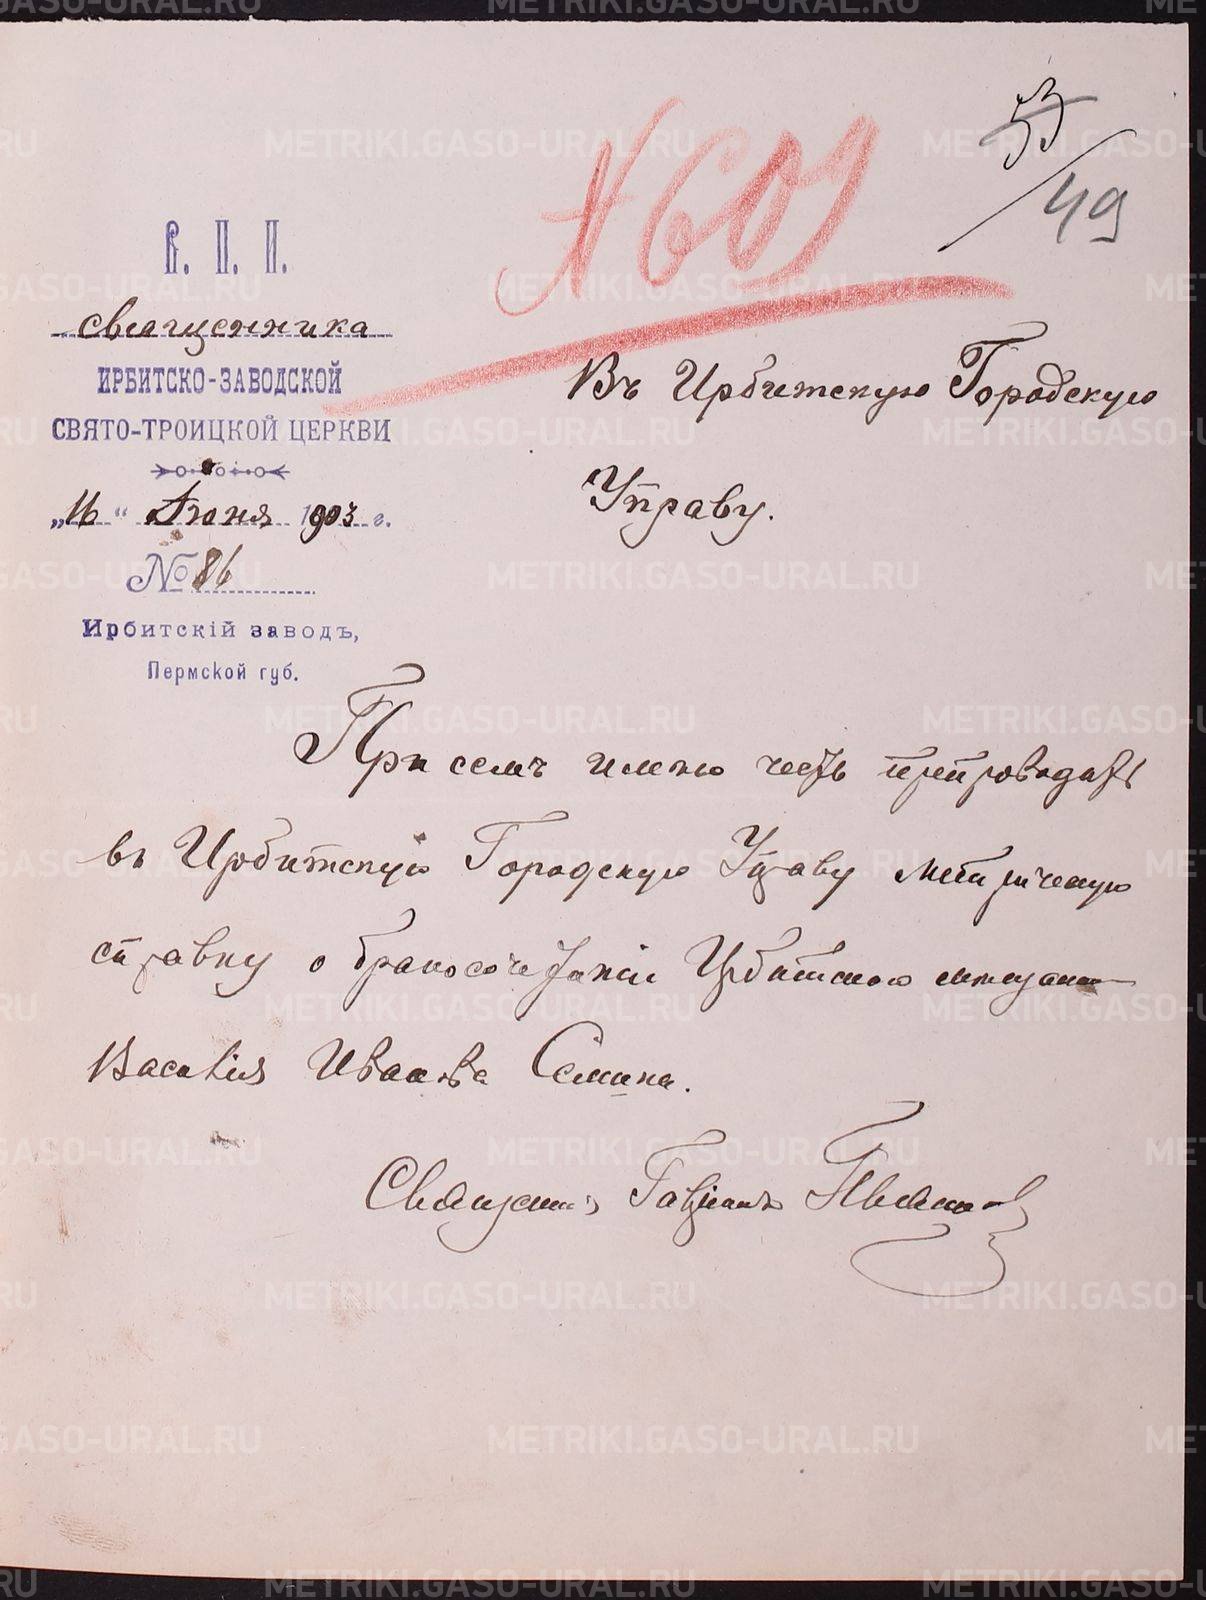 53
49
N 609
В. П. И.
священника
ИРБИТСКО-ЗАВОДСКОЙ
СВЯТО-ТРОИЦКОЙ ЦЕРКВИ
„16“ Іюня 1903 г.
№ 86
Ирбитскій заводъ,
Пермской губ.
Въ Ирбитскую Городскую
Управу.
При семъ имѣю честь препроводить
въ Ирбитскую Городскую Управу метрическую
справку о бракосочетаніи Ирбитскаго мѣщанина
Василія Иванова Семина.
Священникъ Гавріилъ
METRIKI.GASO-URAL.RU